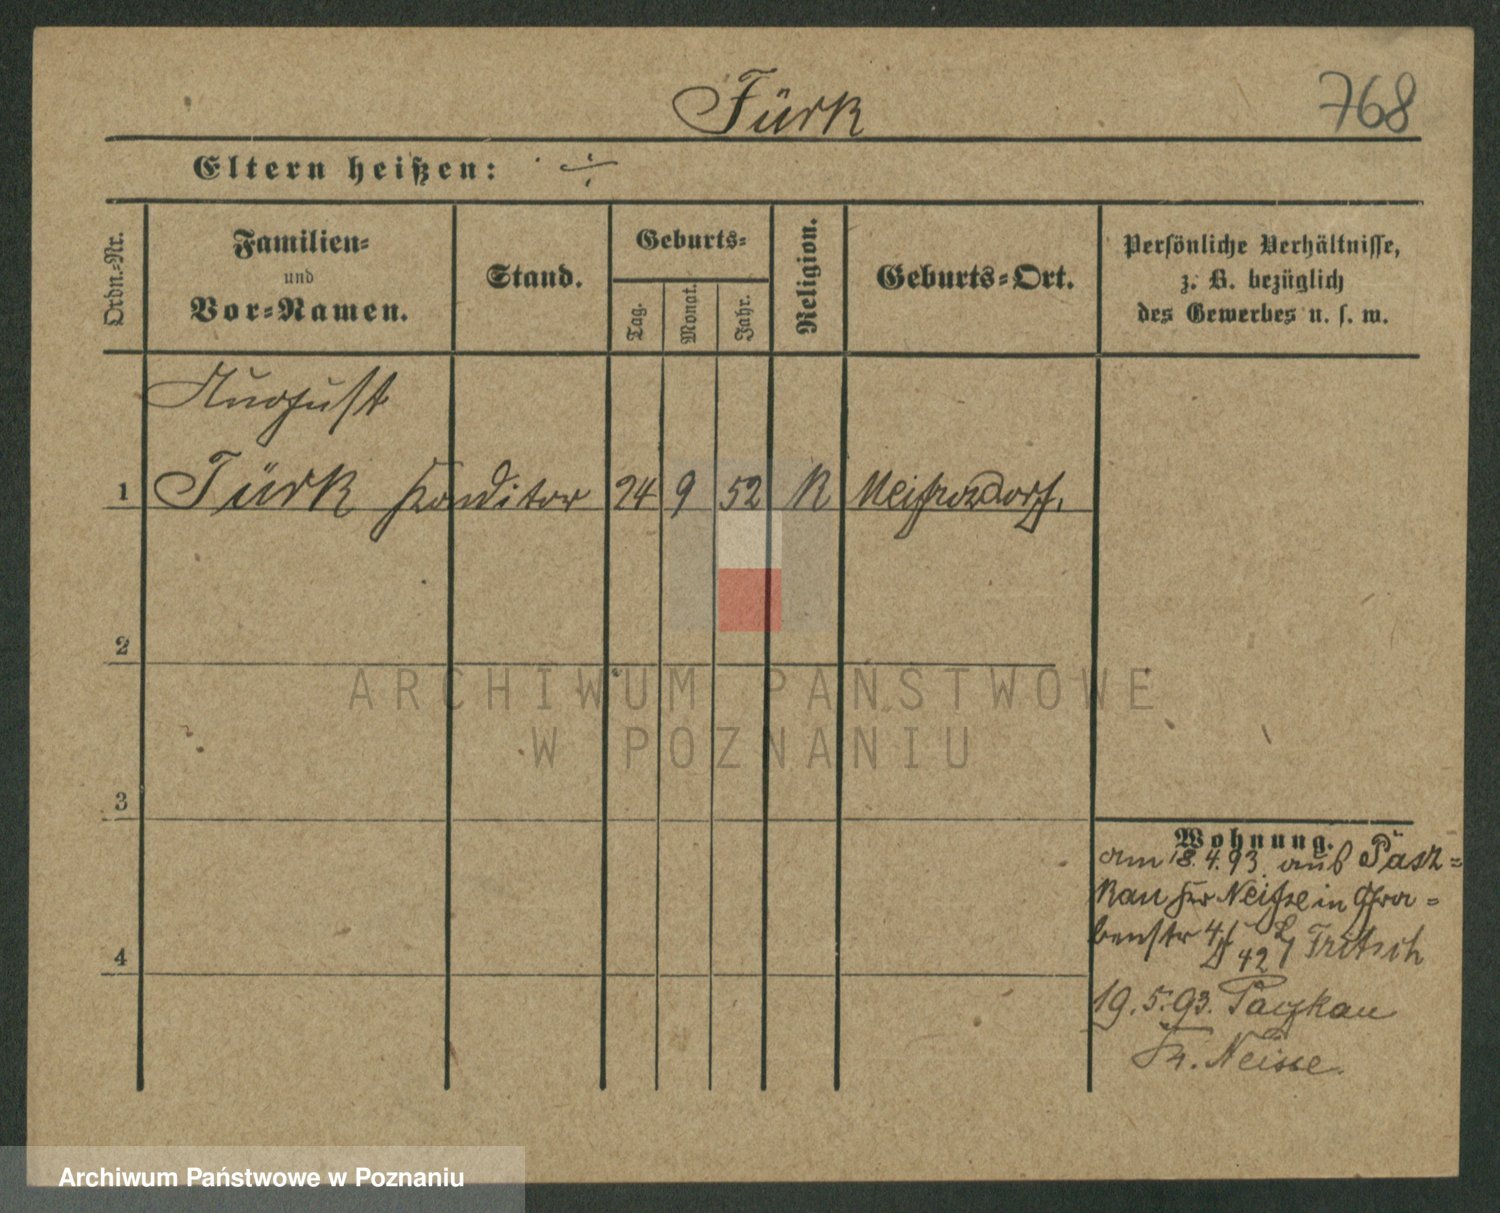 Fürk
768
Eltern heißen: ÷
Ordn.-Nr.
Familien-
und
Vor-Namen.
Stand.
Geburts-
Tag.
Monat.
Jahr.
Religion.
Geburts-Ort.
Persönliche Verhältnisse,
z. B. bezüglich
des Gewerbes u. s. w.
August
1 Türk Konditor 24 9 52 K
2
3
4
Wohnung.
am 18.4.93. aus Pasz-
kau Kr Neisse in Gra-
benstr 4 42 Fritsch
19.5.93. Patzkau
Kr. Neisse.
ARCHIWUM PAŃSTWOWE
W POZNANIU
Archiwum Państwowe w Poznaniu